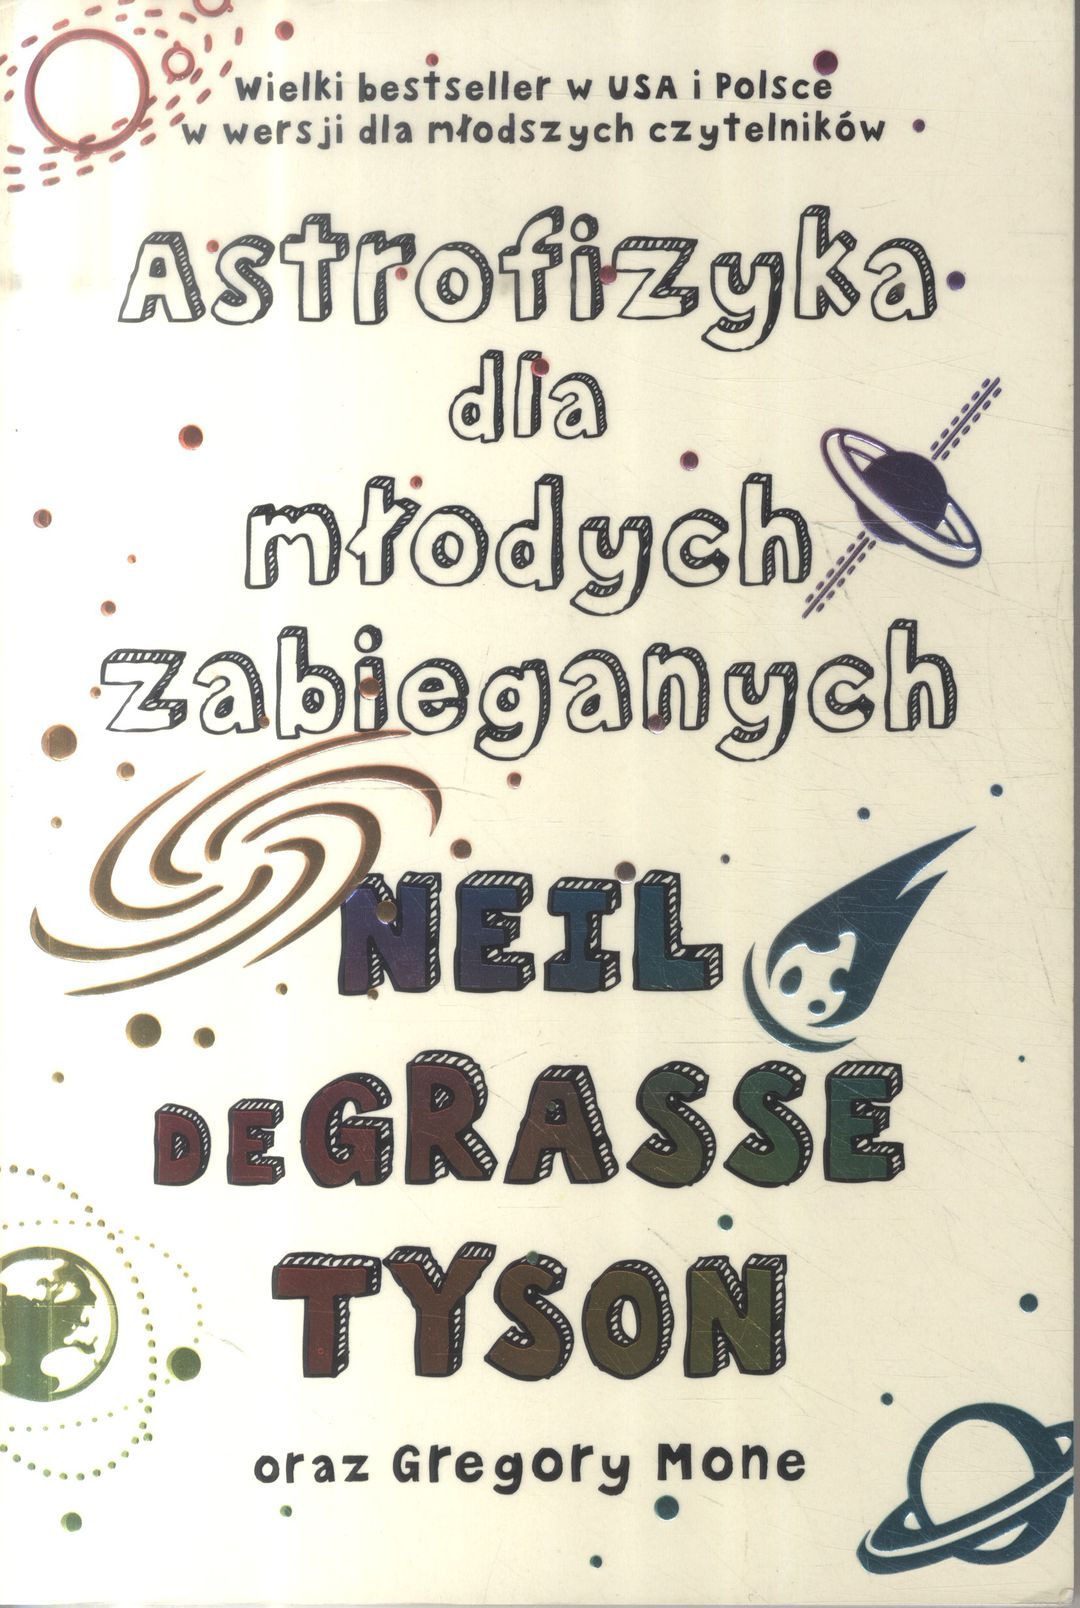 Wielki bestseller w USA i Polsce
w wersji dla młodszych czytelników
Astrofizyka
dla
młodych
zabieganych
NEIL
DEGRASSE
TYSON
oraz Gregory Mone